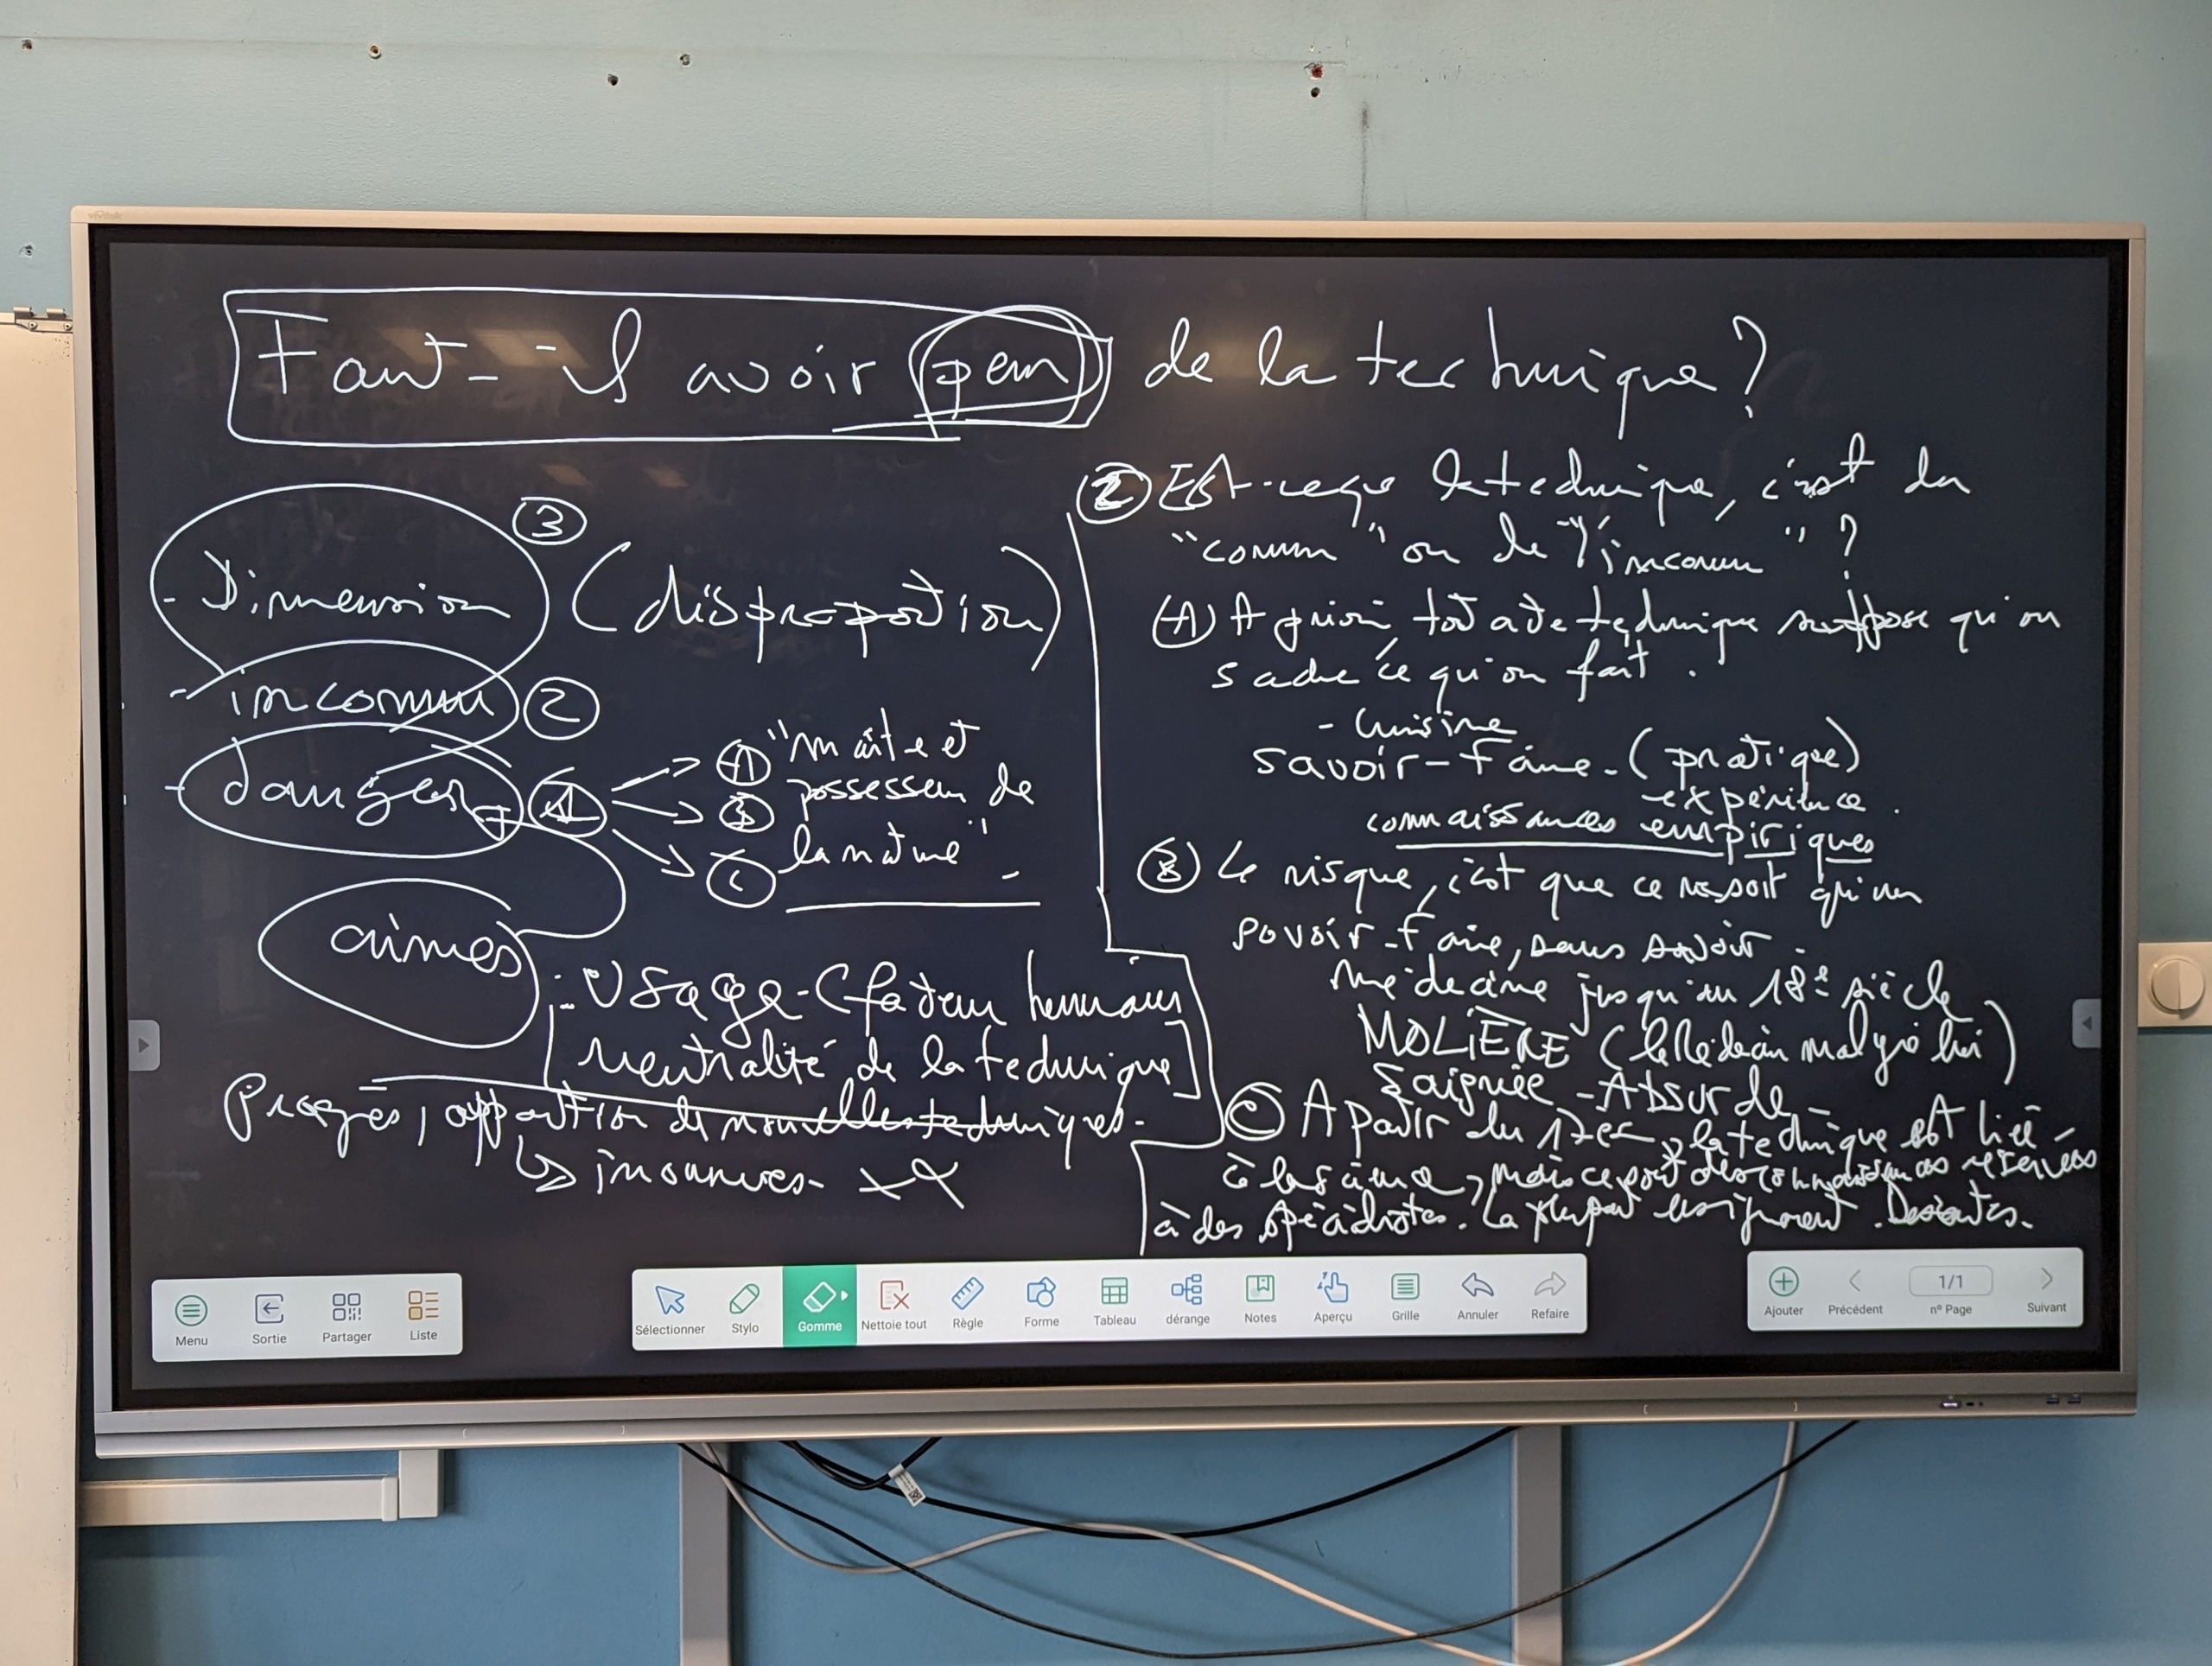 vivitek
Faut-il avoir peur de la technique ?
- Dimension ③ (disproportion)
- inconnu ②
- danger ①
Ⓐ "maître et
Ⓑ possesseur de
Ⓒ la nature" -
: Usage - (facteur humain
neutralité de la technique]
Progrès, apparition de nouvelles techniques -
② Est-ce que la technique, c'est du
"connu" ou de "l'inconnu" ?
Ⓐ A priori, tout acte technique suppose qu'on
sache ce qu'on fait.
- Cuisine
savoir-faire - (pratique)
expérience.
connaissances empiriques
Ⓑ Le risque, c'est que ce ne soit qu'un
pouvoir-faire, sans savoir -
médecine jusqu'au 18e siècle
MOLIÈRE (le Médecin malgré lui)
Saignée - Absurde
Ⓒ A partir du 17e, la technique est liée
à la science, mais ce sont des connaissances réservées
à des spécialistes. La plupart les ignorent. Descartes.
Menu
Sortie
Partager
Liste
Sélectionner
Stylo
Gomme
Nettoie tout
Règle
Forme
Tableau
dérange
Notes
Aperçu
Grille
Annuler
Refaire
Ajouter
Précédent
1/1
n° Page
Suivant